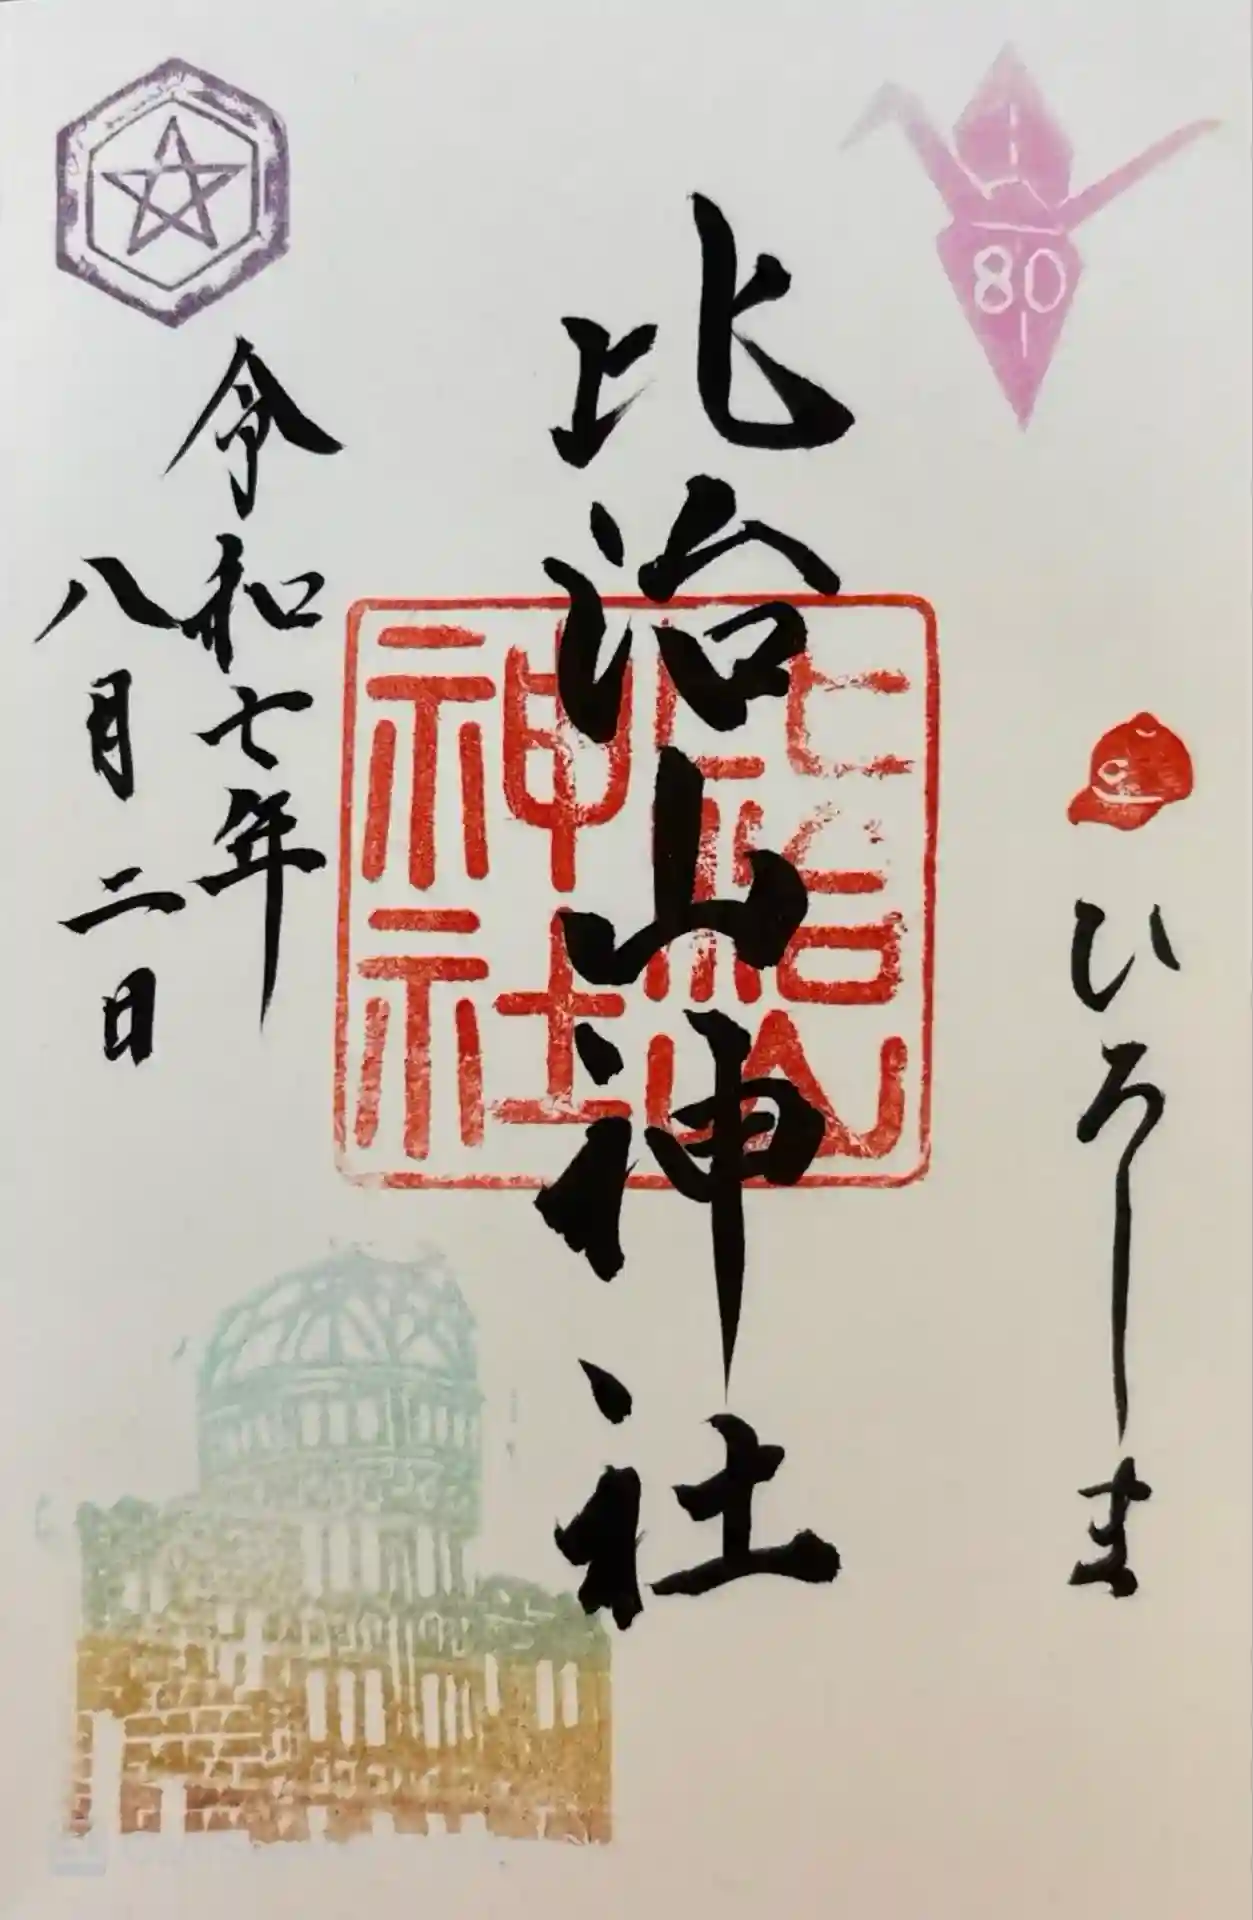 80
ひろしま
比治山神社
比治山
神社
令和七年
八月二日